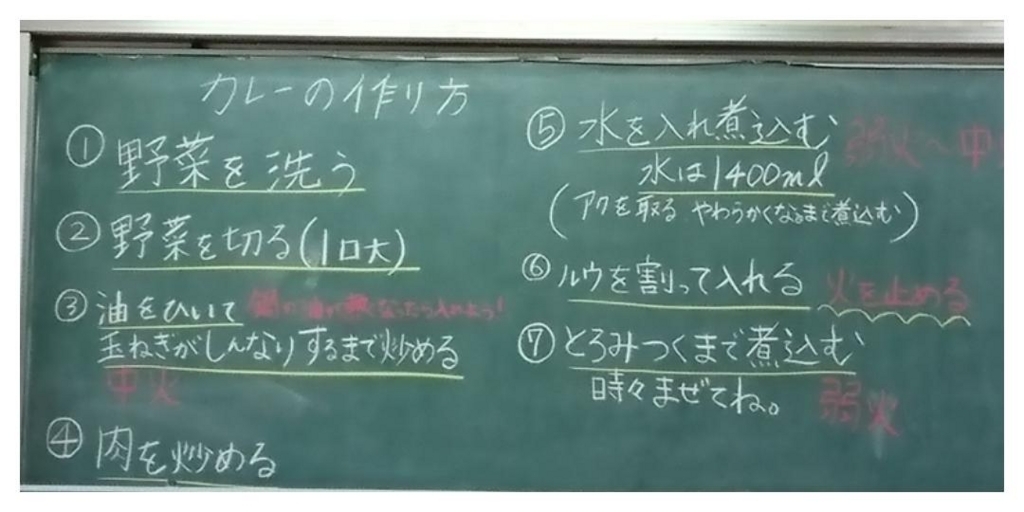 カレーの作り方
① 野菜を洗う
② 野菜を切る(1口大)
③ 油をひいて 鍋の油が熱くなったら入れよう!
玉ねぎがしんなりするまで炒める
中火
④ 肉を炒める
⑤ 水を入れ煮込む 弱火〜中
水は1400ml
(アクを取る やわらかくなるまで煮込む)
⑥ ルウを割って入れる 火を止める
⑦ とろみつくまで煮込む
時々まぜてね。 弱火